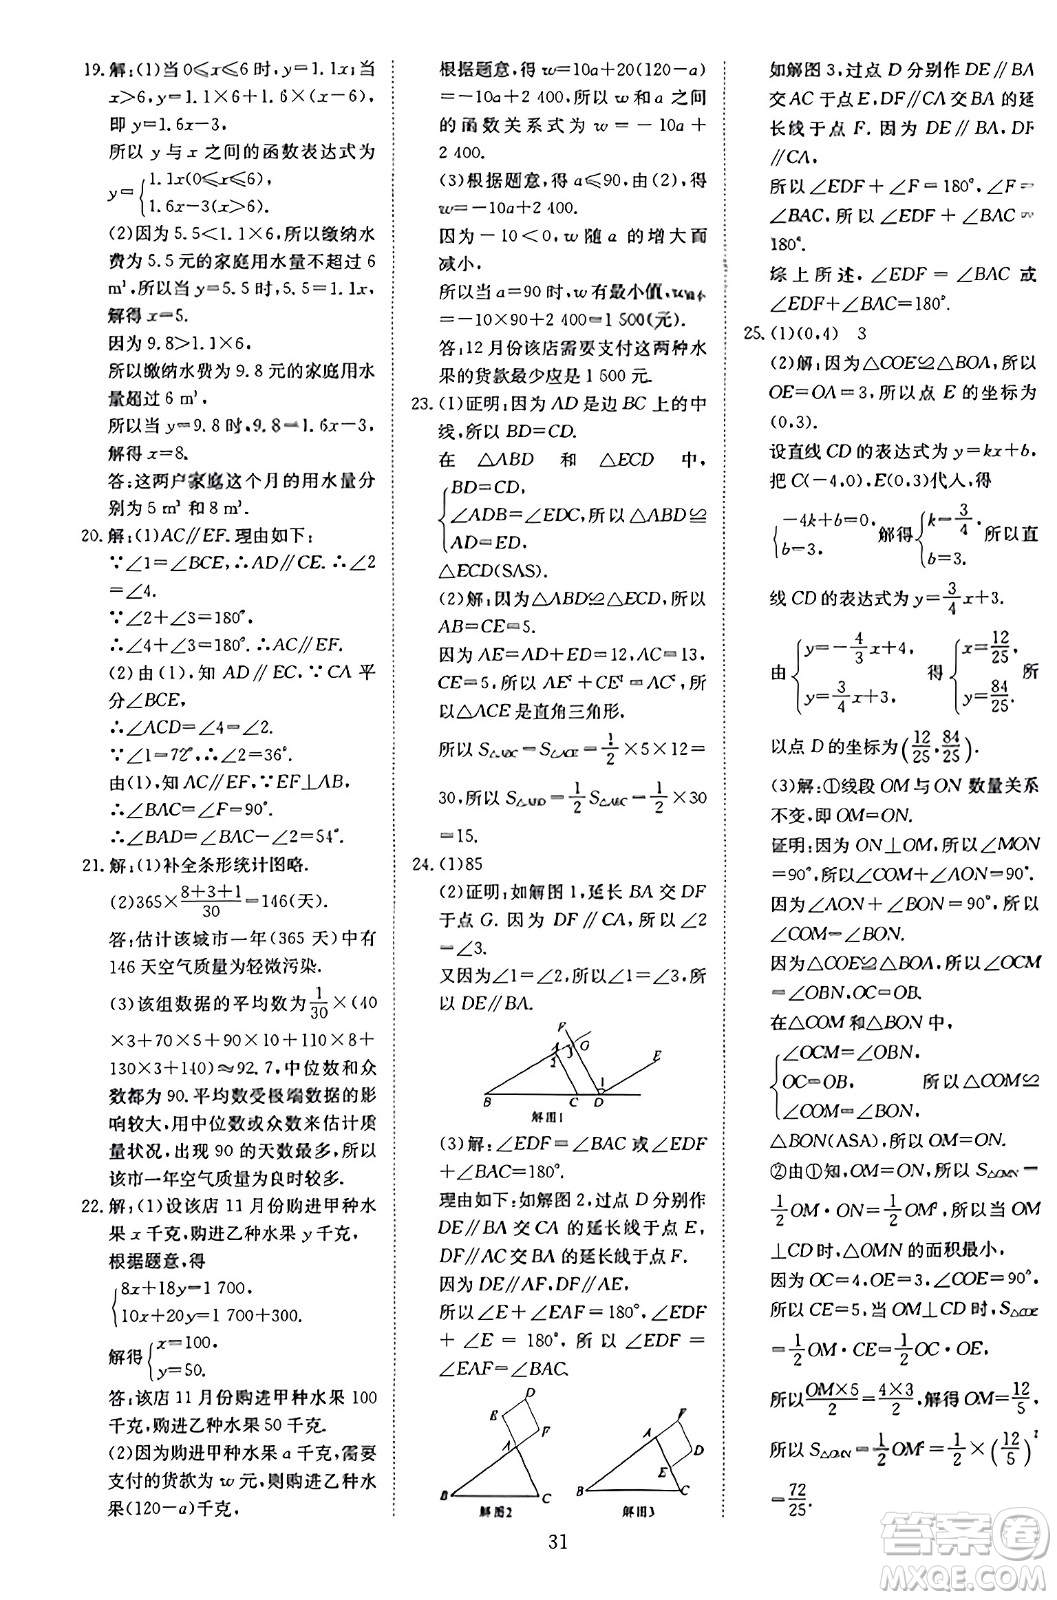 19. 解:(1)当 0≤x≤6 时, y=1.1x;当
x>6, y=1.1×6+1.6×(x-6),
即 y=1.6x-3,
所以 y 与 x 之间的函数表达式为
y={1.1x(0≤x≤6),
1.6x-3(x>6).
(2)因为 5.5<1.1×6,所以缴纳水
费为 5.5 元的家庭用水量不超过 6
m³,所以当 y=5.5 时,5.5=1.1x,
解得 x=5.
因为 9.8>1.1×6,
所以缴纳水费为 9.8 元的家庭用水
量超过 6 m³,
所以当 y=9.8 时,9.8=1.6x-3,
解得 x=8.
答:这两户家庭这个月的用水量分
别为 5 m³ 和 8 m³.
20. 解:(1)AC∥EF. 理由如下:
∵∠1=∠BCE,∴AD∥CE.∴∠2
=∠4.
∵∠2+∠3=180°,
∴∠4+∠3=180°.∴AC∥EF.
(2)由(1),知 AD∥EC.∵CA 平
分∠BCE,
∴∠ACD=∠4=∠2.
∵∠1=72°,∴∠2=36°.
由(1),知 AC∥EF,∵EF⊥AB,
∴∠BAC=∠F=90°.
∴∠BAD=∠BAC-∠2=54°.
21. 解:(1)补全条形统计图略.
(2)365×(8+3+1)/30=146(天).
答:估计该城市一年(365 天)中有
146 天空气质量为轻微污染.
(3)该组数据的平均数为 1/30×(40
×3+70×5+90×10+110×8+
120×3+140)≈92.7,中位数和众
数都为 90.平均数受极端数据的影
响较大,用中位数或众数来估计质
量状况,出现 90 的天数最多,所以
该市一年空气质量为良时较多.
22. 解:(1)设该店 11 月份购进甲种水
果 x 千克,购进乙种水果 y 千克,
根据题意,得
{8x+18y=1 700,
10x+20y=1 700+300,
解得{x=100,
y=50.
答:该店 11 月份购进甲种水果 100
千克,购进乙种水果 50 千克.
(2)因为购进甲种水果 a 千克,需要
支付的货款为 w 元,则购进乙种水
果(120-a)千克,
根据题意,得 w=10a+20(120-a)
=-10a+2 400,所以 w 和 a 之间
的函数关系式为 w=-10a+
2 400.
(3)根据题意,得 a≤90,由(2),得
w=-10a+2 400,
因为-10<0,w 随 a 的增大而
减小,
所以当 a=90 时,w 有最小值,w最小=
-10×90+2 400=1 500(元).
答:12 月份该店需要支付这两种水
果的货款最少应是 1 500 元.
23. (1)证明:因为 AD 是边 BC 上的中
线,所以 BD=CD.
在 △ABD 和 △ECD 中,
{BD=CD,
∠ADB=∠EDC,所以△ABD≌
AD=ED,
△ECD(SAS).
(2)解:因为△ABD≌△ECD,所以
AB=CE=5.
因为 AE=AD+ED=12,AC=13,
CE=5,所以 AE²+CE²=AC²,所
以△ACE 是直角三角形,
所以 S△ABC=S△ACE=1/2×5×12=
30,所以 S△ABD=1/2S△ABC=1/2×30
=15.
24. (1)85
(2)证明:如解图 1,延长 BA 交 DF
于点 G. 因为 DF∥CA,所以∠2
=∠3.
又因为∠1=∠2,所以∠1=∠3,所
以 DE∥BA.
F
A 3 G
2
E
1
B C D
解图1
(3)解:∠EDF=∠BAC 或∠EDF
+∠BAC=180°.
理由如下:如解图 2,过点 D 分别作
DE∥BA 交 CA 的延长线于点 E,
DF∥AC 交 BA 的延长线于点 F.
因为 DE∥AF,DF∥AE,
所以∠E+∠EAF=180°,∠EDF
+∠E=180°,所以∠EDF=
∠EAF=∠BAC.
D
E
F
A
B C
解图2
F
A
D
E
B C
解图3
如解图 3,过点 D 分别作 DE∥BA
交 AC 于点 E,DF∥CA 交 BA 的延
长线于点 F. 因为 DE∥BA,DF
∥CA,
所以∠EDF+∠F=180°,∠F=
∠BAC,所以∠EDF+∠BAC=
180°.
综上所述,∠EDF=∠BAC 或
∠EDF+∠BAC=180°.
25. (1)(0,4) 3
(2)解:因为△COE≌△BOA,所以
OE=OA=3,所以点 E 的坐标为
(0,3).
设直线 CD 的表达式为 y=kx+b.
把 C(-4,0),E(0,3)代入,得
{-4k+b=0, 解得{k=3/4, 所以直
b=3, b=3.
线 CD 的表达式为 y=3/4x+3.
由{y=-4/3x+4, 得{x=12/25, 所
y=3/4x+3, y=84/25.
以点 D 的坐标为(12/25,84/25).
(3)解:①线段 OM 与 ON 数量关系
不变,即 OM=ON.
证明:因为 ON⊥OM,所以∠MON
=90°,所以∠COM+∠AON=90°.
因为∠AON+∠BON=90°,所以
∠COM=∠BON.
因为△COE≌△BOA,所以∠OCM
=∠OBN,OC=OB.
在△COM 和△BON 中,
{∠OCM=∠OBN,
OC=OB, 所以△COM≌
∠COM=∠BON,
△BON(ASA),所以 OM=ON.
②由①知,OM=ON,所以 S△OMN=
1/2OM·ON=1/2OM²,所以当 OM
⊥CD时,△OMN 的面积最小,
因为 OC=4,OE=3,∠COE=90°,
所以 CE=5,当 OM⊥CD时,S△COE
=1/2OM·CE=1/2OC·OE,
所以(OM×5)/2=(4×3)/2,解得 OM=12/5,
所以 S△OMN=1/2OM²=1/2×(12/5)²
=72/25.
31
答案卷
MXQE.COM